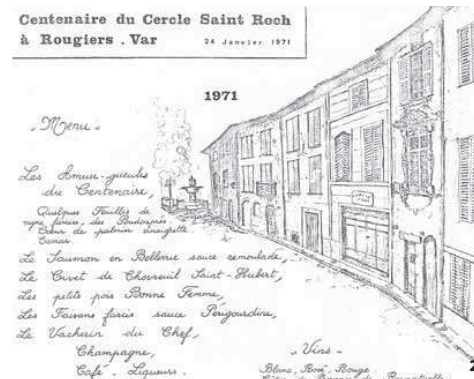 Centenaire du Cercle Saint Roch
à Rougiers . Var 24 Janvier 1971
1971
Menu
Les Amuse-gueules
du Centenaire,
Quelques Feuilles de
vigne farcies, des
Cœur de palmier vinaigrette
Le Saumon en Bellevue sauce remoulade,
Le Civet de Chevreuil Saint-Hubert,
Les petits pois Bonne Femme,
Les Faisans farcis sauce Périgourdine,
Le Vacherin du Chef,
Champagne,
Café - Liqueurs.
Vins
Blanc, Rosé, Rouge